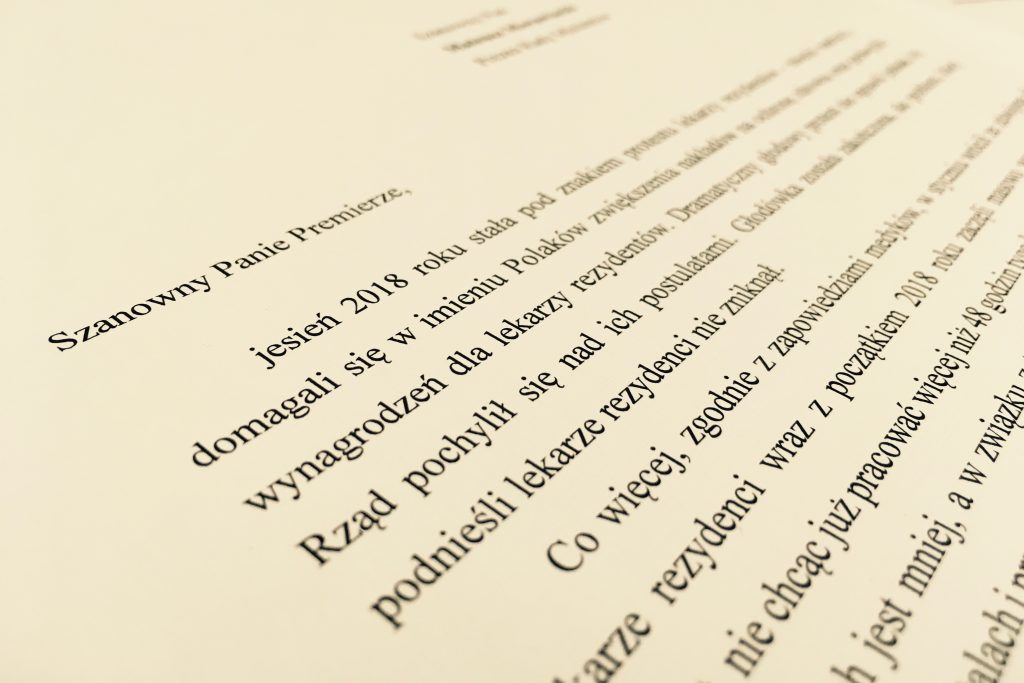 Szanowny Pan
Mateusz Morawiecki
Prezes Rady Ministrów
Szanowny Panie Premierze,
jesień 2018 roku stała pod znakiem protestu lekarzy rezydentów
domagali się w imieniu Polaków zwiększenia nakładów na ochronę zdrowia oraz
wynagrodzeń dla lekarzy rezydentów. Dramatyczny głodowy protest nie
Rząd pochylił się nad ich postulatami. Głodówka została zakończona, ale problem, jaki
podnieśli lekarze rezydenci nie zniknął.
Co więcej, zgodnie z zapowiedziami medyków, w styczniu
karze rezydenci wraz z początkiem 2018 roku zaczęli masowo
nie chcąc już pracować więcej niż 48 godzin
h jest mniej, a w związku z
alach i